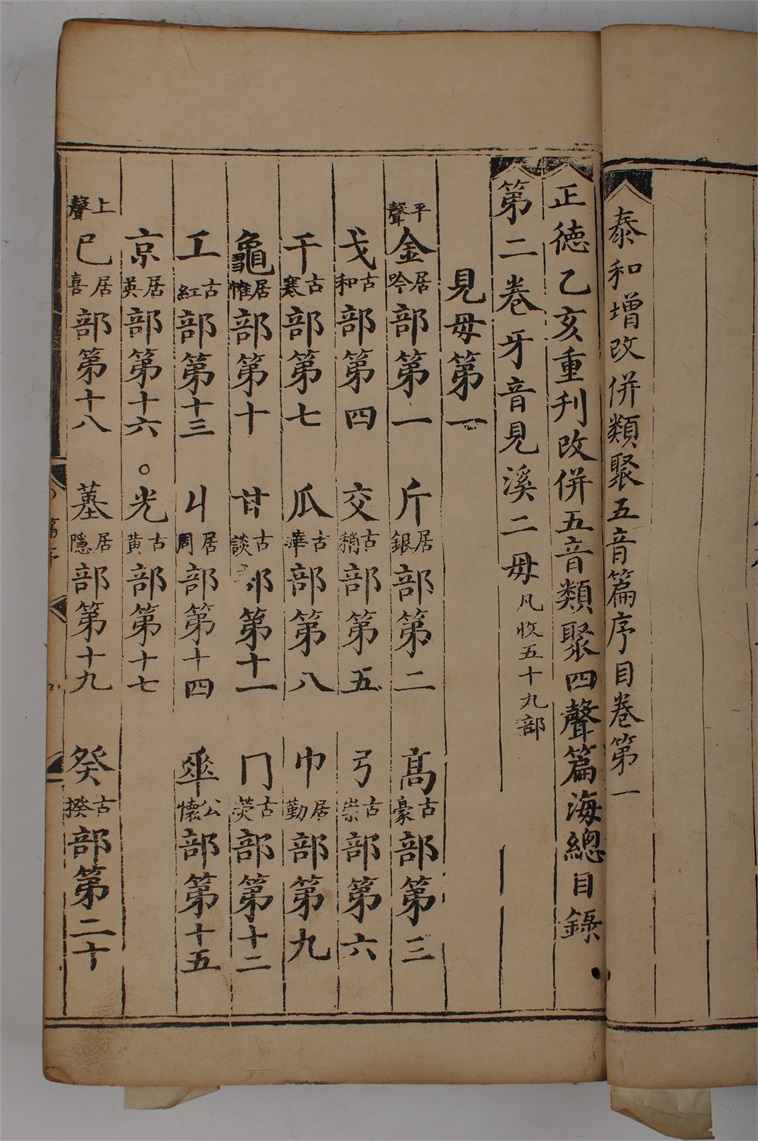 泰和增改併類聚五音篇序目卷第一
正德乙亥重刋改併五音類聚四聲篇海總目錄
第二卷牙音見溪二毋凡收五十九部
見毋第一
平聲金居吟部第一 斤居銀部第二 髙古豪部第三
戈古和部第四 交古部第五 弓古崇部第六
干古寒部第七 瓜古華部第八 巾居勤部第九
龜居惟部第十 甘古談部第十一 冂古熒部第十二
工古紅部第十三 丩居周部第十四 𠦬公懷部第十五
京居英部第十六 ○光古黃部第十七
上聲已居喜部第十八 居隱部第十九 癸古揆部第二十